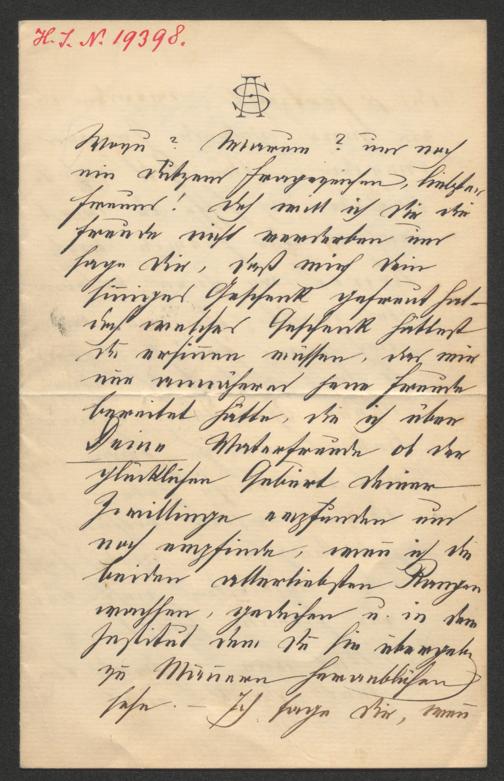 H. I. N. 19398.
AS
Wozu? Warum? und noch
ein Dutzend Fragezeichen, liebster
Freund! Doch will ich Dir die
Freude nicht verderben und
sage Dir, daß mich Dein
sinniges Geschenk gefreut hat –
doch welches Geschenk hättest
Du ersinnen müssen, das mir
nur annähernd jene Freude
bereitet hätte, die ich über
Deine Vaterfreude ob der
glücklichen Geburt Deiner
Zwillinge empfunden und
noch empfinde, wenn ich die
beiden allerliebsten Rangen
wachsen, gedeihen u. in dem
Institut dem Du sie übergeben
zu Männern heranblühen
sehe. – Ich sage Dir, wenn